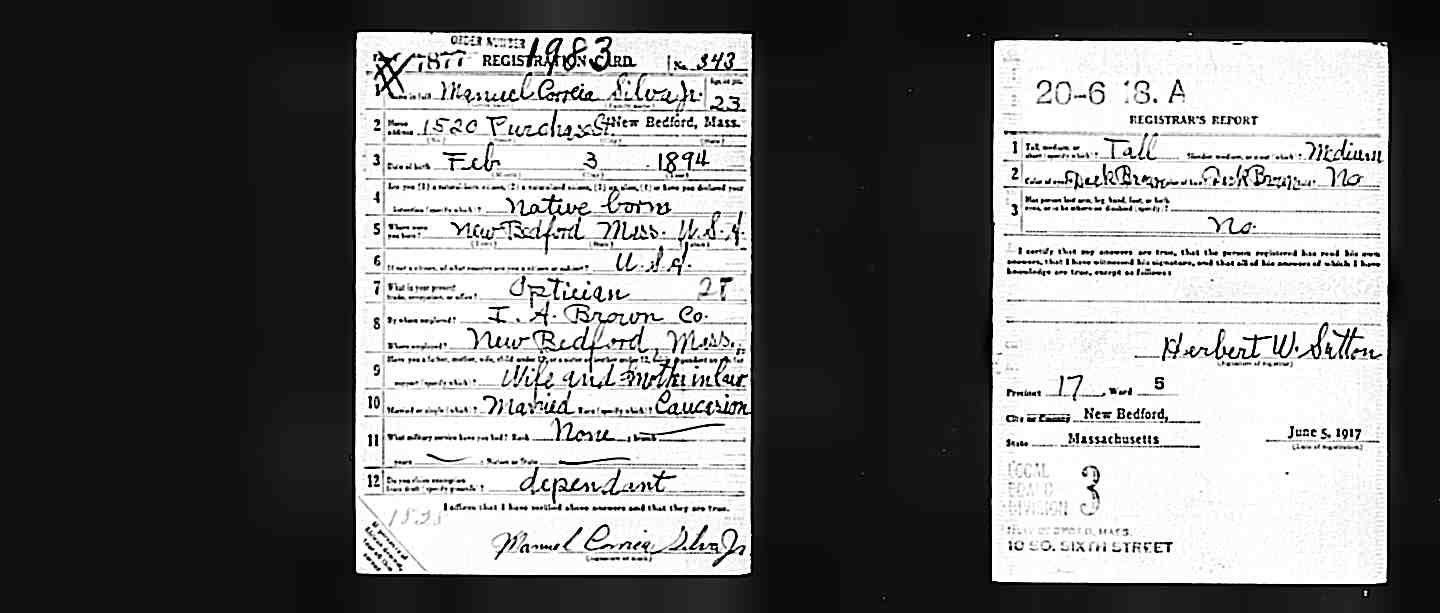 ORDER NUMBER 1983
1877 REGISTRATION CARD No. 343
1 Name in full Manuel Correia Silva Jr. Age in yrs. 23
2 Home address 1520 Purchase St New Bedford, Mass.
3 Date of birth Feb 3 1894
4 Are you (1) a natural-born citizen, (2) a naturalized citizen, (3) an alien, (4) or have you declared your
intention (specify which)? Native born
5 Where were you born? New Bedford Mass. U.S.A.
6 If not a citizen, of what country are you a citizen or subject? U.S.A.
7 What is your present trade, occupation, or office? Optician 2T
8 By whom employed? I. A. Brown Co.
Where employed? New Bedford, Mass.
9 Have you a father, mother, wife, child under 12, or a sister or brother under 12, solely dependent on you for
support (specify which)? Wife and mother in law
10 Married or single (which)? Married Race (specify which)? Caucasion
11 What military service have you had? Rank None ; branch
years ; Nation or State
12 Do you claim exemption from draft (specify grounds)? dependant
I affirm that I have verified above answers and that they are true.
Manuel Correia Silva Jr
(Signature or mark)
20-6 18. A
REGISTRAR'S REPORT
1 Tall, medium, or short (specify which)? Tall Slender, medium, or stout (which)? Medium
2 Color of eyes? Dark Brown Color of hair? Dark Brown No
3 Has person lost arm, leg, hand, foot, or both
eyes, or is he otherwise disabled (specify)?
No.
I certify that my answers are true, that the person registered has read his own
answers, that I have witnessed his signature, and that all of his answers of which I have
knowledge are true, except as follows:
Herbert W. Sutton
(Signature of registrar)
Precinct 17, Ward 5
City or County New Bedford,
State Massachusetts
June 5, 1917
(Date of registration)
LOCAL
BOARD 3
DIVISION
NEW BEDFORD, MASS.
10 SO. SIXTH STREET